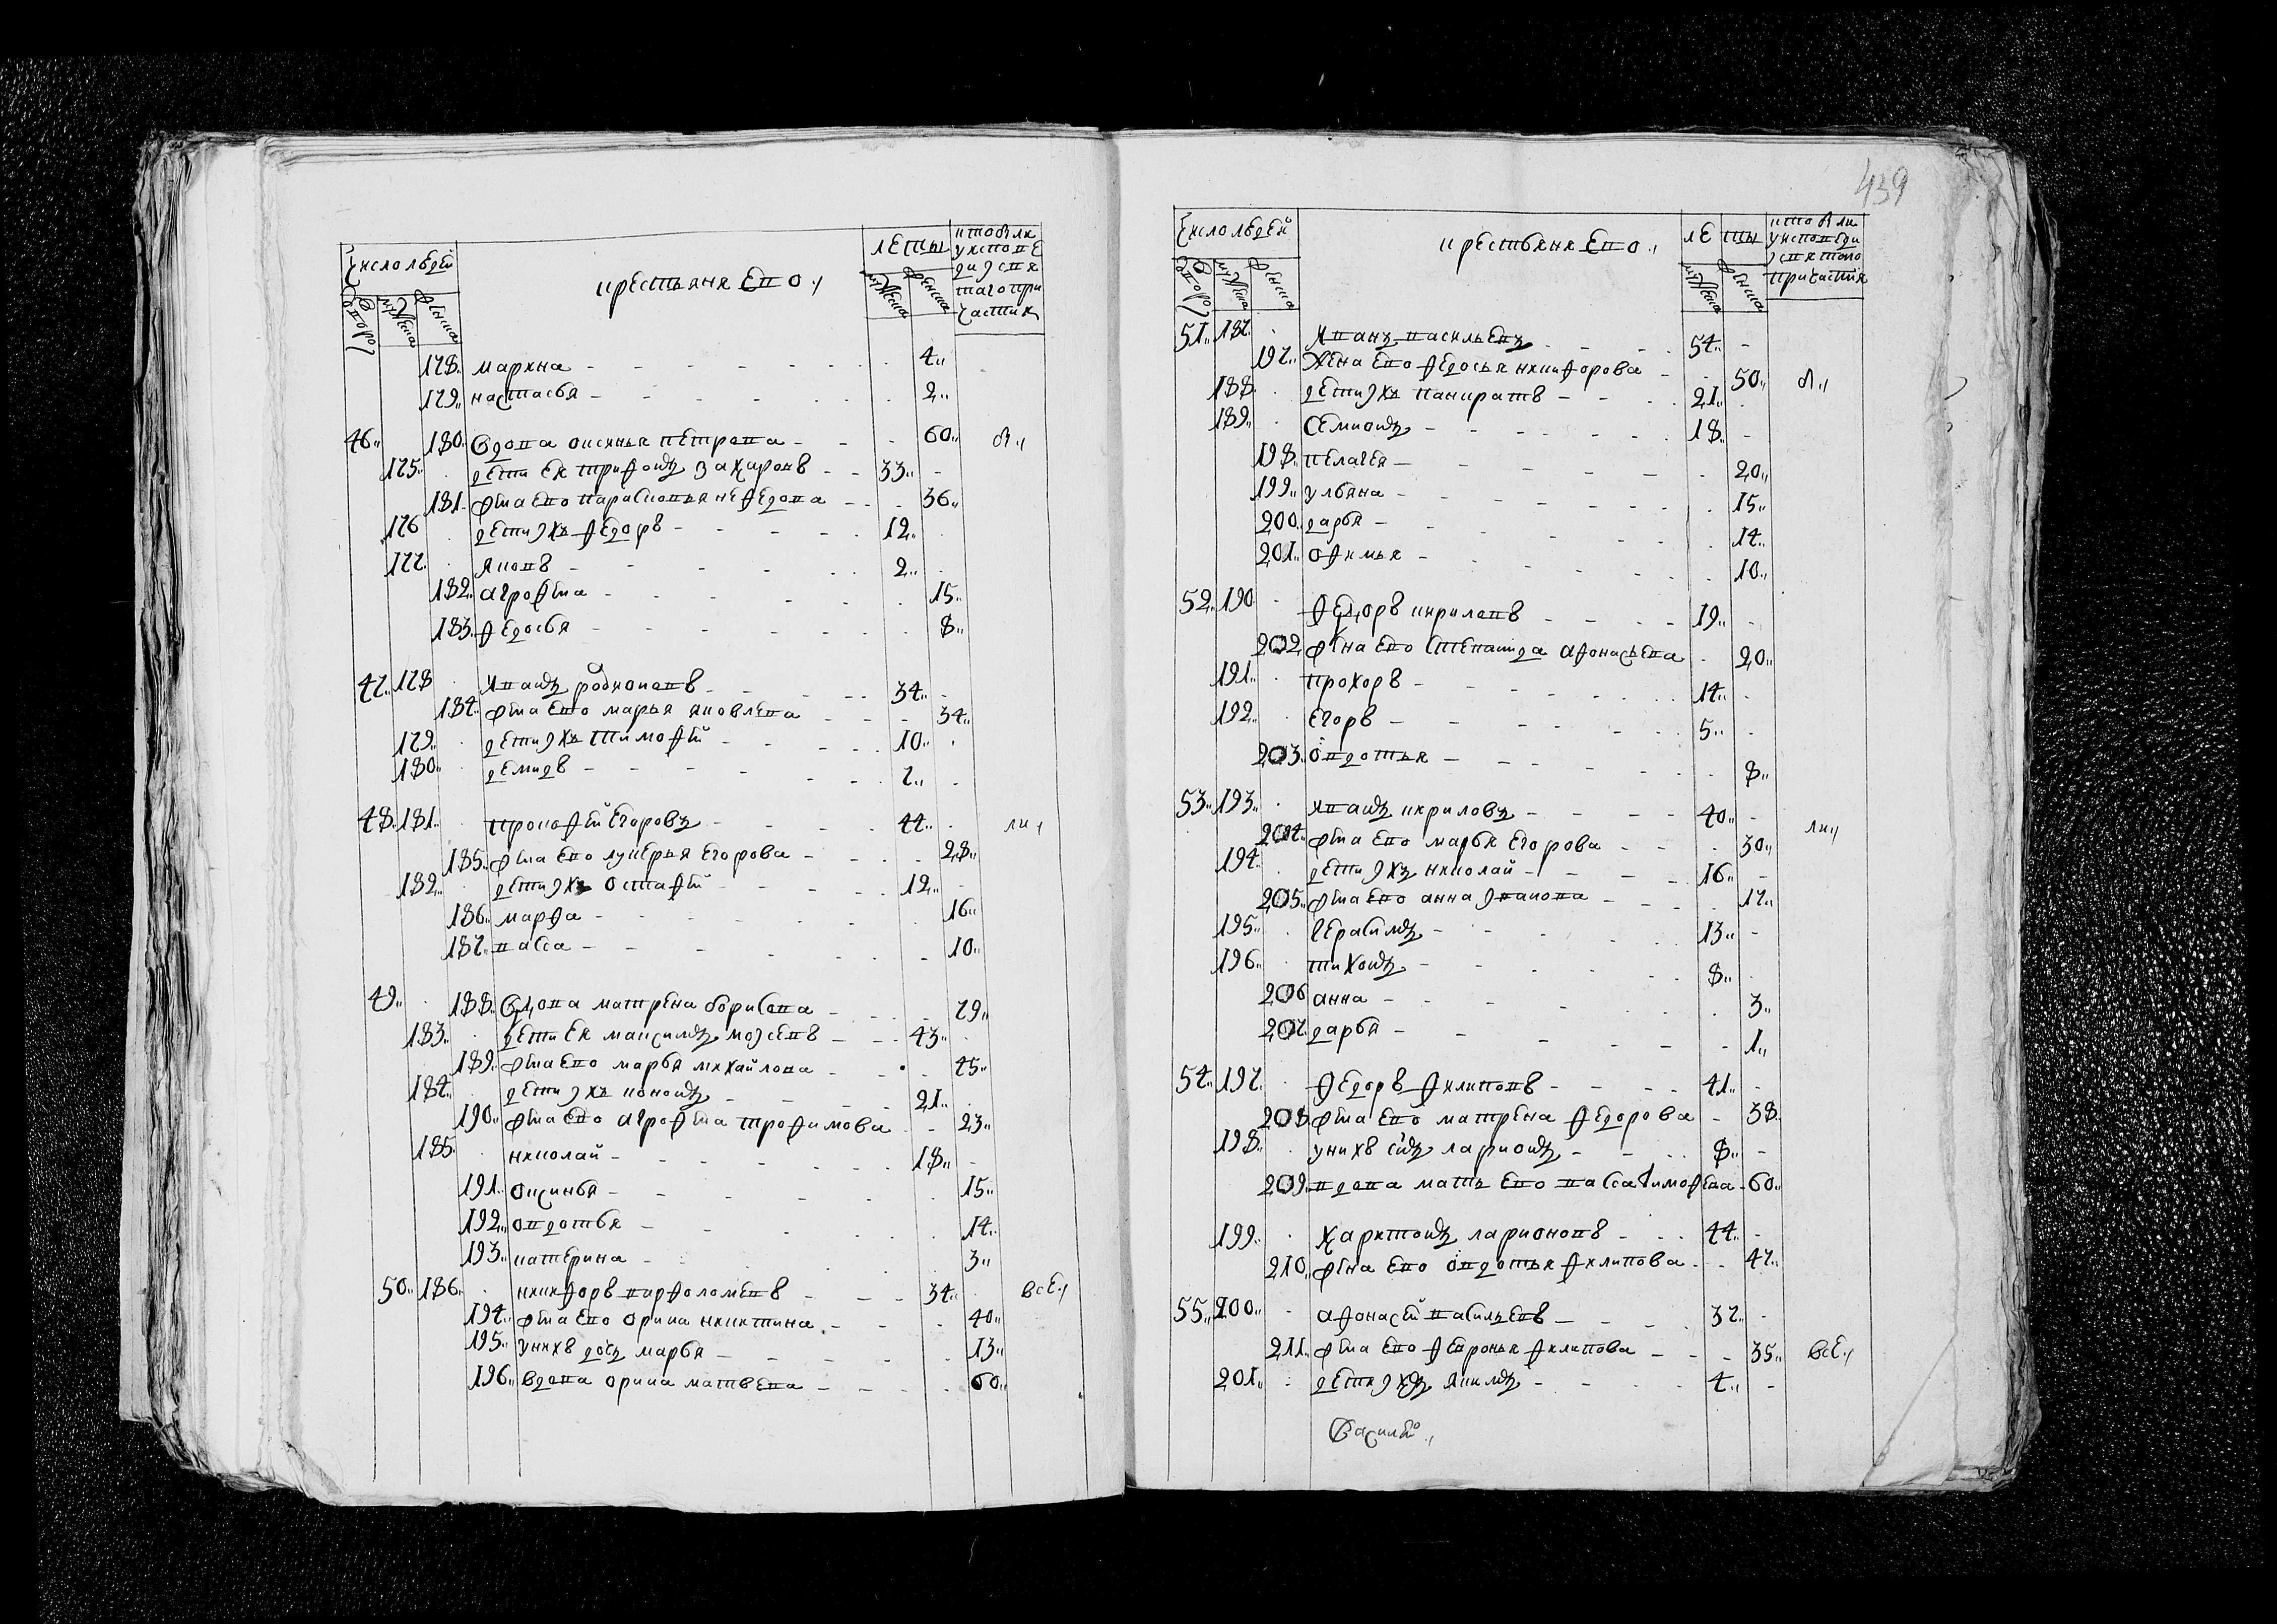 число людей
дворо
мужеска
женска
крестьяня ево
леты
мужеска
женска
кто были
у испове
ди и свя
таго при
частия
178 марина 4
179 настасья 2
46 180 вдова оксинья петрова 60 б
175 дети ея трифонъ захаровъ 33
181 жена ево парасковья нефедова 36
176 дети ихъ федоръ 12
177 яковъ 2
182 аграфена 15
183 федосья 8
47 178 иванъ родионовъ 34
184 жена ево марья яковлева 34
179 дети ихъ тимофей 10
180 демидъ 7
48 181 прокофей егоровъ 44 ли
185 жена ево лукерья егорова 28
182 дети ихъ остафей 12
186 марфа 16
187 васса 10
49 188 вдова матрена борисова 79
183 дети ея максимъ моисевъ 43
189 жена ево марья михайлова 45
184 дети ихъ кононъ 21
190 жена ево агрофена трофимова 23
185 николай 18
191 оксинья 15
192 овдотья 14
193 катерина 3
50 186 никифоръ варфоломевъ 34 все
194 жена ево орина никитина 40
195 у нихъ дочь марья 13
196 вдова орина матвева 60
439
число людей
дворо
мужеска
женска
крестьяня ево
леты
мужеска
женска
кто были
у исповеди
и святаго
причастия
51 187 иванъ васильевъ 54
197 жена ево федосья никифорова 50 б
188 дети ихъ панкратъ 21
189 семионъ 18
198 пелагея 20
199 ульяна 15
200 дарья 14
201 офимья 10
52 190 федоръ кириловъ 19
202 жена ево степанида афонасьева 20
191 прохоръ 14
192 егоръ 5
203 овдотья 8
53 193 иванъ кириловъ 40 ли
204 жена ево марья егорова 30
194 дети ихъ николай 16
205 жена ево анна иванова 17
195 герасимъ 13
196 тихонъ 8
206 анна 3
207 дарья 1
54 197 федоръ филиповъ 41
208 жена ево матрена федорова 38
198 у нихъ сынъ ларионъ 8
209 вдова мать ево васса тимофева 60
199 харитонъ ларионовъ 44
210 жена ево овдотья филипова 47
55 200 афонасей васильевъ 37
211 жена ево февронья филипова 35 все
201 дети ихъ якимъ 4
василей